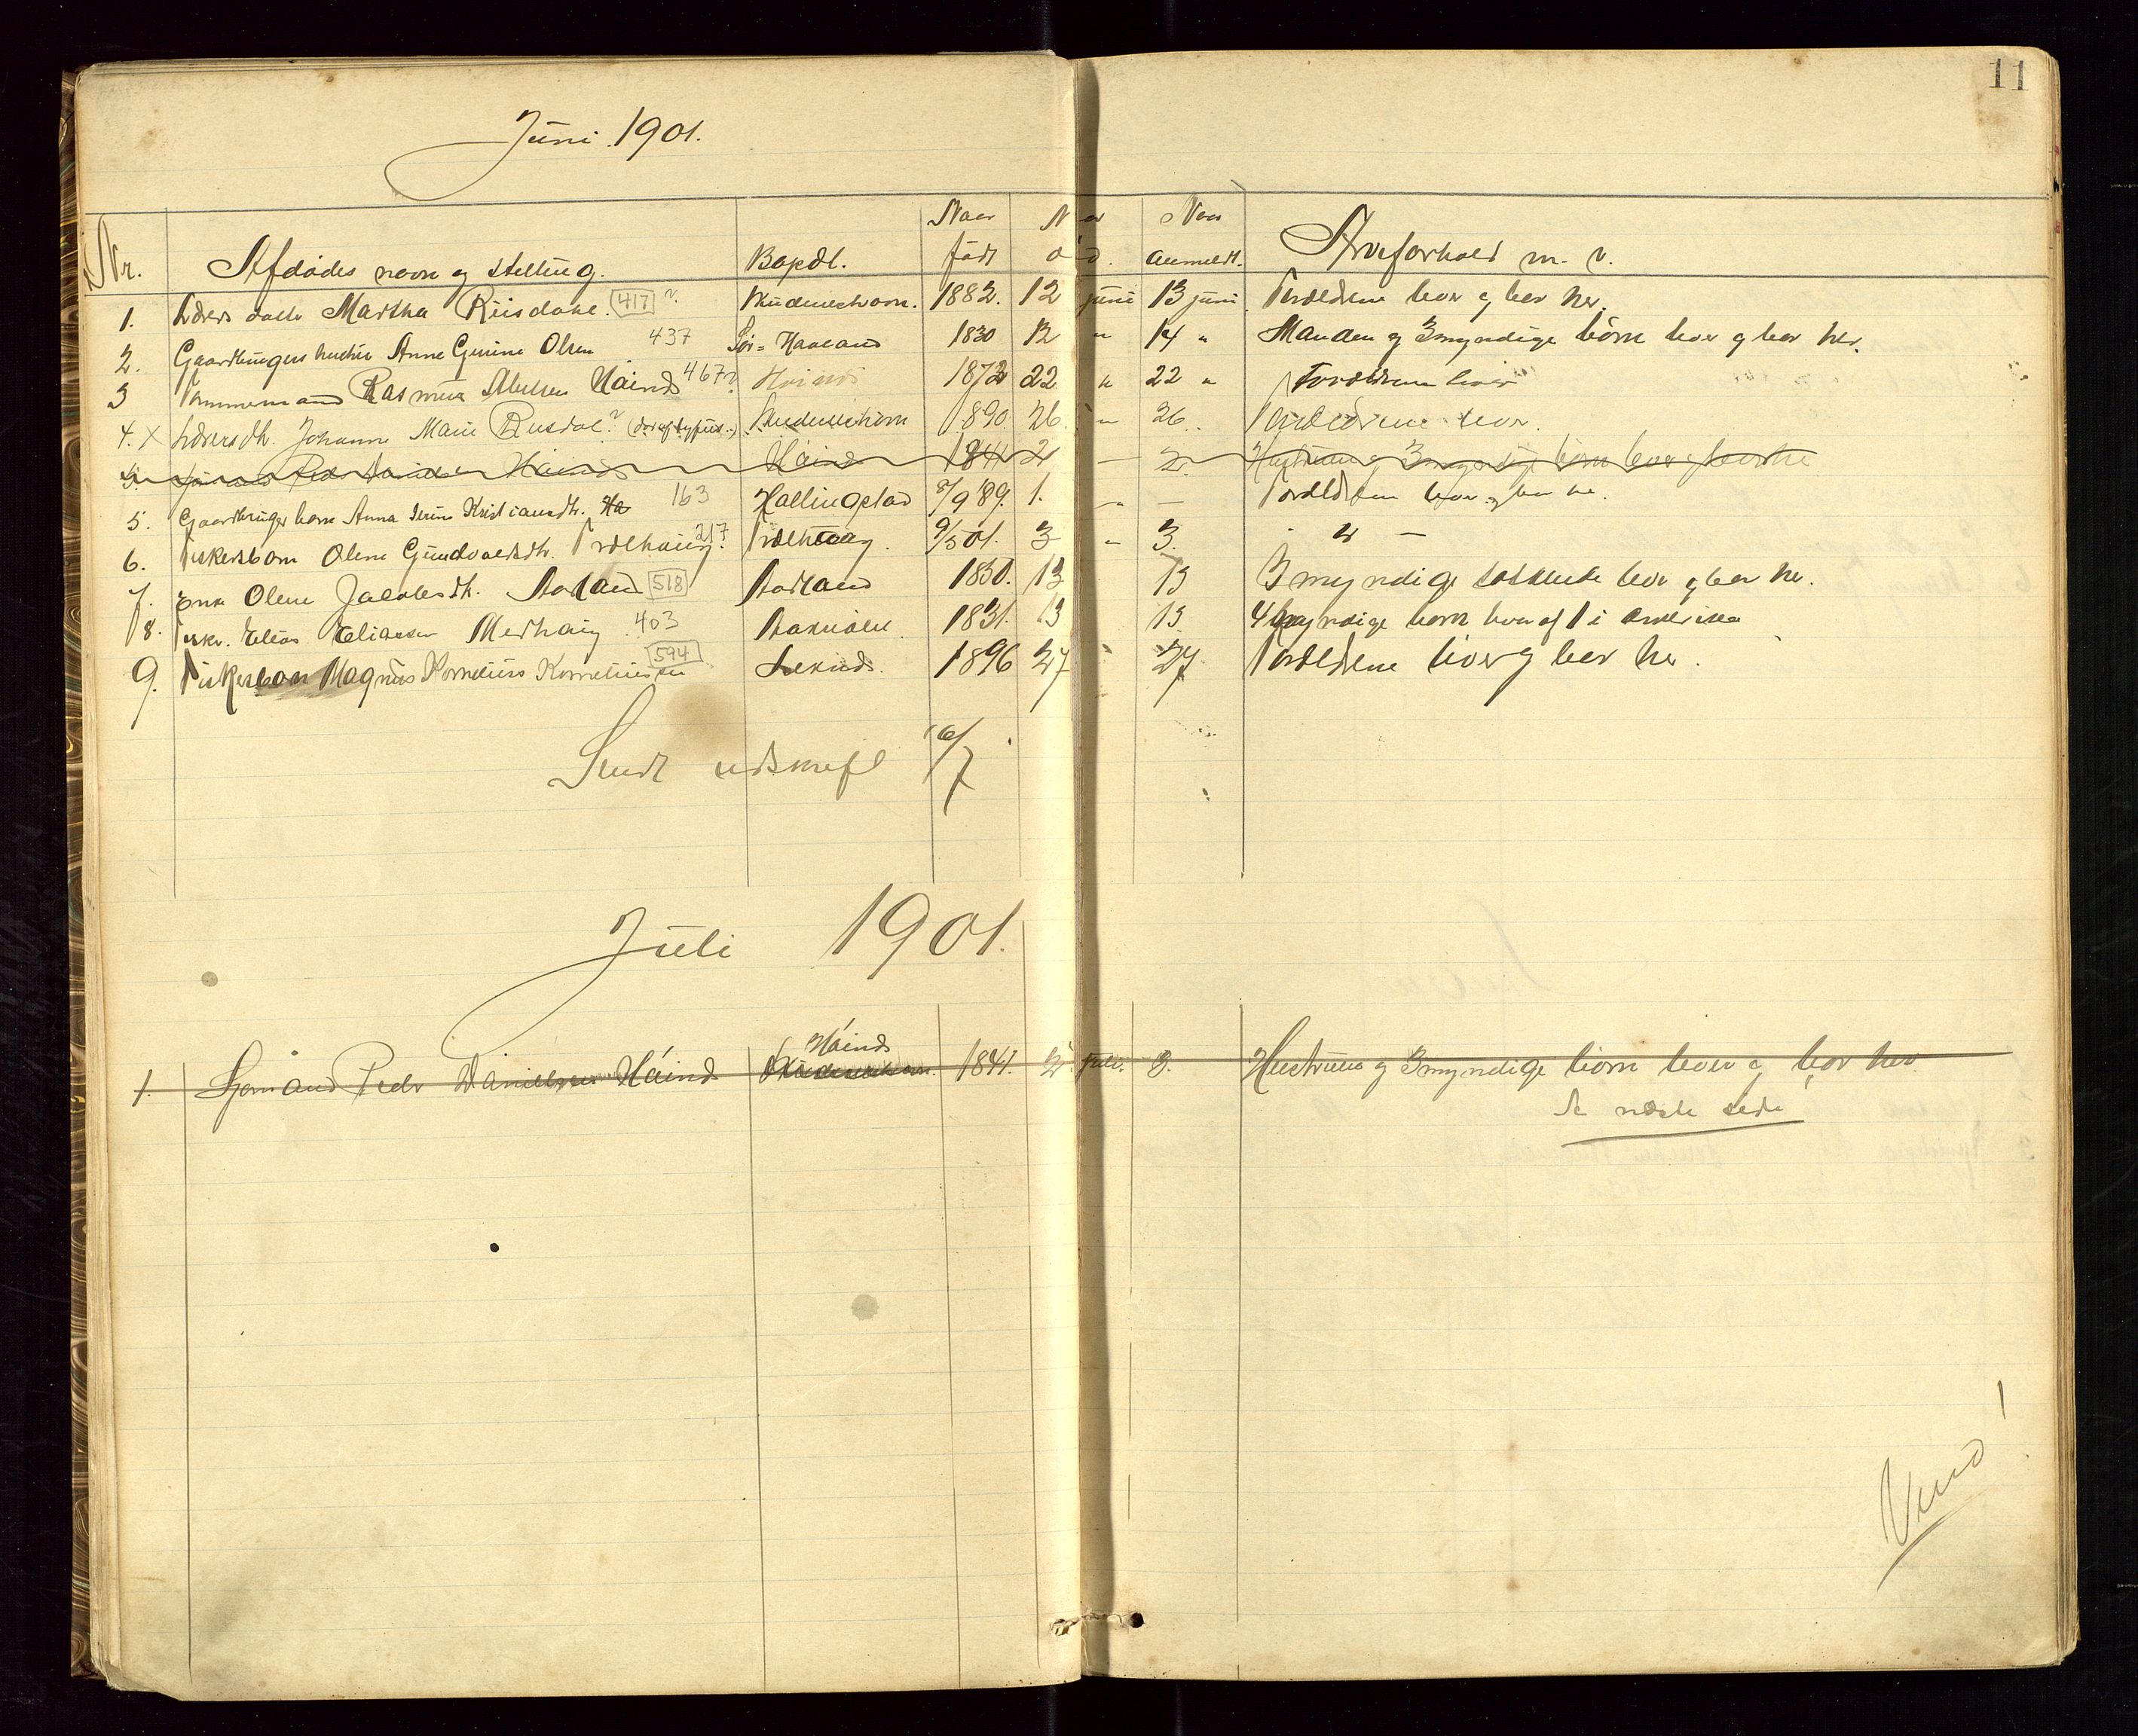 11
Juni 1901.
Nr. Afdødes navn og stilling. Bopæl. Naar født Naar død. Naar anmeldt. Arveforhold m. v.
1. Lærers datter Martha Riisdahl. 417 ? Skudeneshavn. 1882. 12 juni 13 juni Forældrene lever og bor her.
2. Gaardbrugers hustru Anne Gurine Olsen 437 Sør-Haaland 1830 12 " 14 " Manden og 3 myndige børn lever og bor her.
3 Tømmermand Rasmus Háind 467 ? 1872 22 " 22 " Forældrene lever
4. X Lærersdtr. Johanne Marie Rusdal ? Skudeneshavn 1890. 26. " 26. Forældrene lever.
5. Sjømand Peder Danielsen Háind Háind 1841 2 — 2. Hustruen og 3 myndige børn lever og bor her
5. Gaardbruger barn Anna Serine Kristiansdtr. Ha 163 Hallingstad 8/9 89. 1. " — Forældrene lever og bor her.
6. Fiskersbarn Olene Gundvaldsdtr. Trælhaug. 217 ? Trælhaug. 9/5 01. 3 " 3. " —
7. Enke Olene Jacobsdtr. Aarland 518 Aarland 1830. 13 13 3 myndige søskende lever og bor her.
8. Fisker Elias Eliassen Medhaug 403 1831. 13 13 4 myndige børn hvoraf 1 i Amerika
9. Fiskersbarn Magnus Kornelius Korneliussen 594 1896 27 27 Forældrene lever og bor her.
Sendt udskrift 6/7
Juli 1901.
Háind
1. Sjømand Peder Danielsen Háind Skudeneshavn. 1841. 2 juli. 3. Hustruen og 3 myndige børn lever og bor her
Se næste side
Vend!